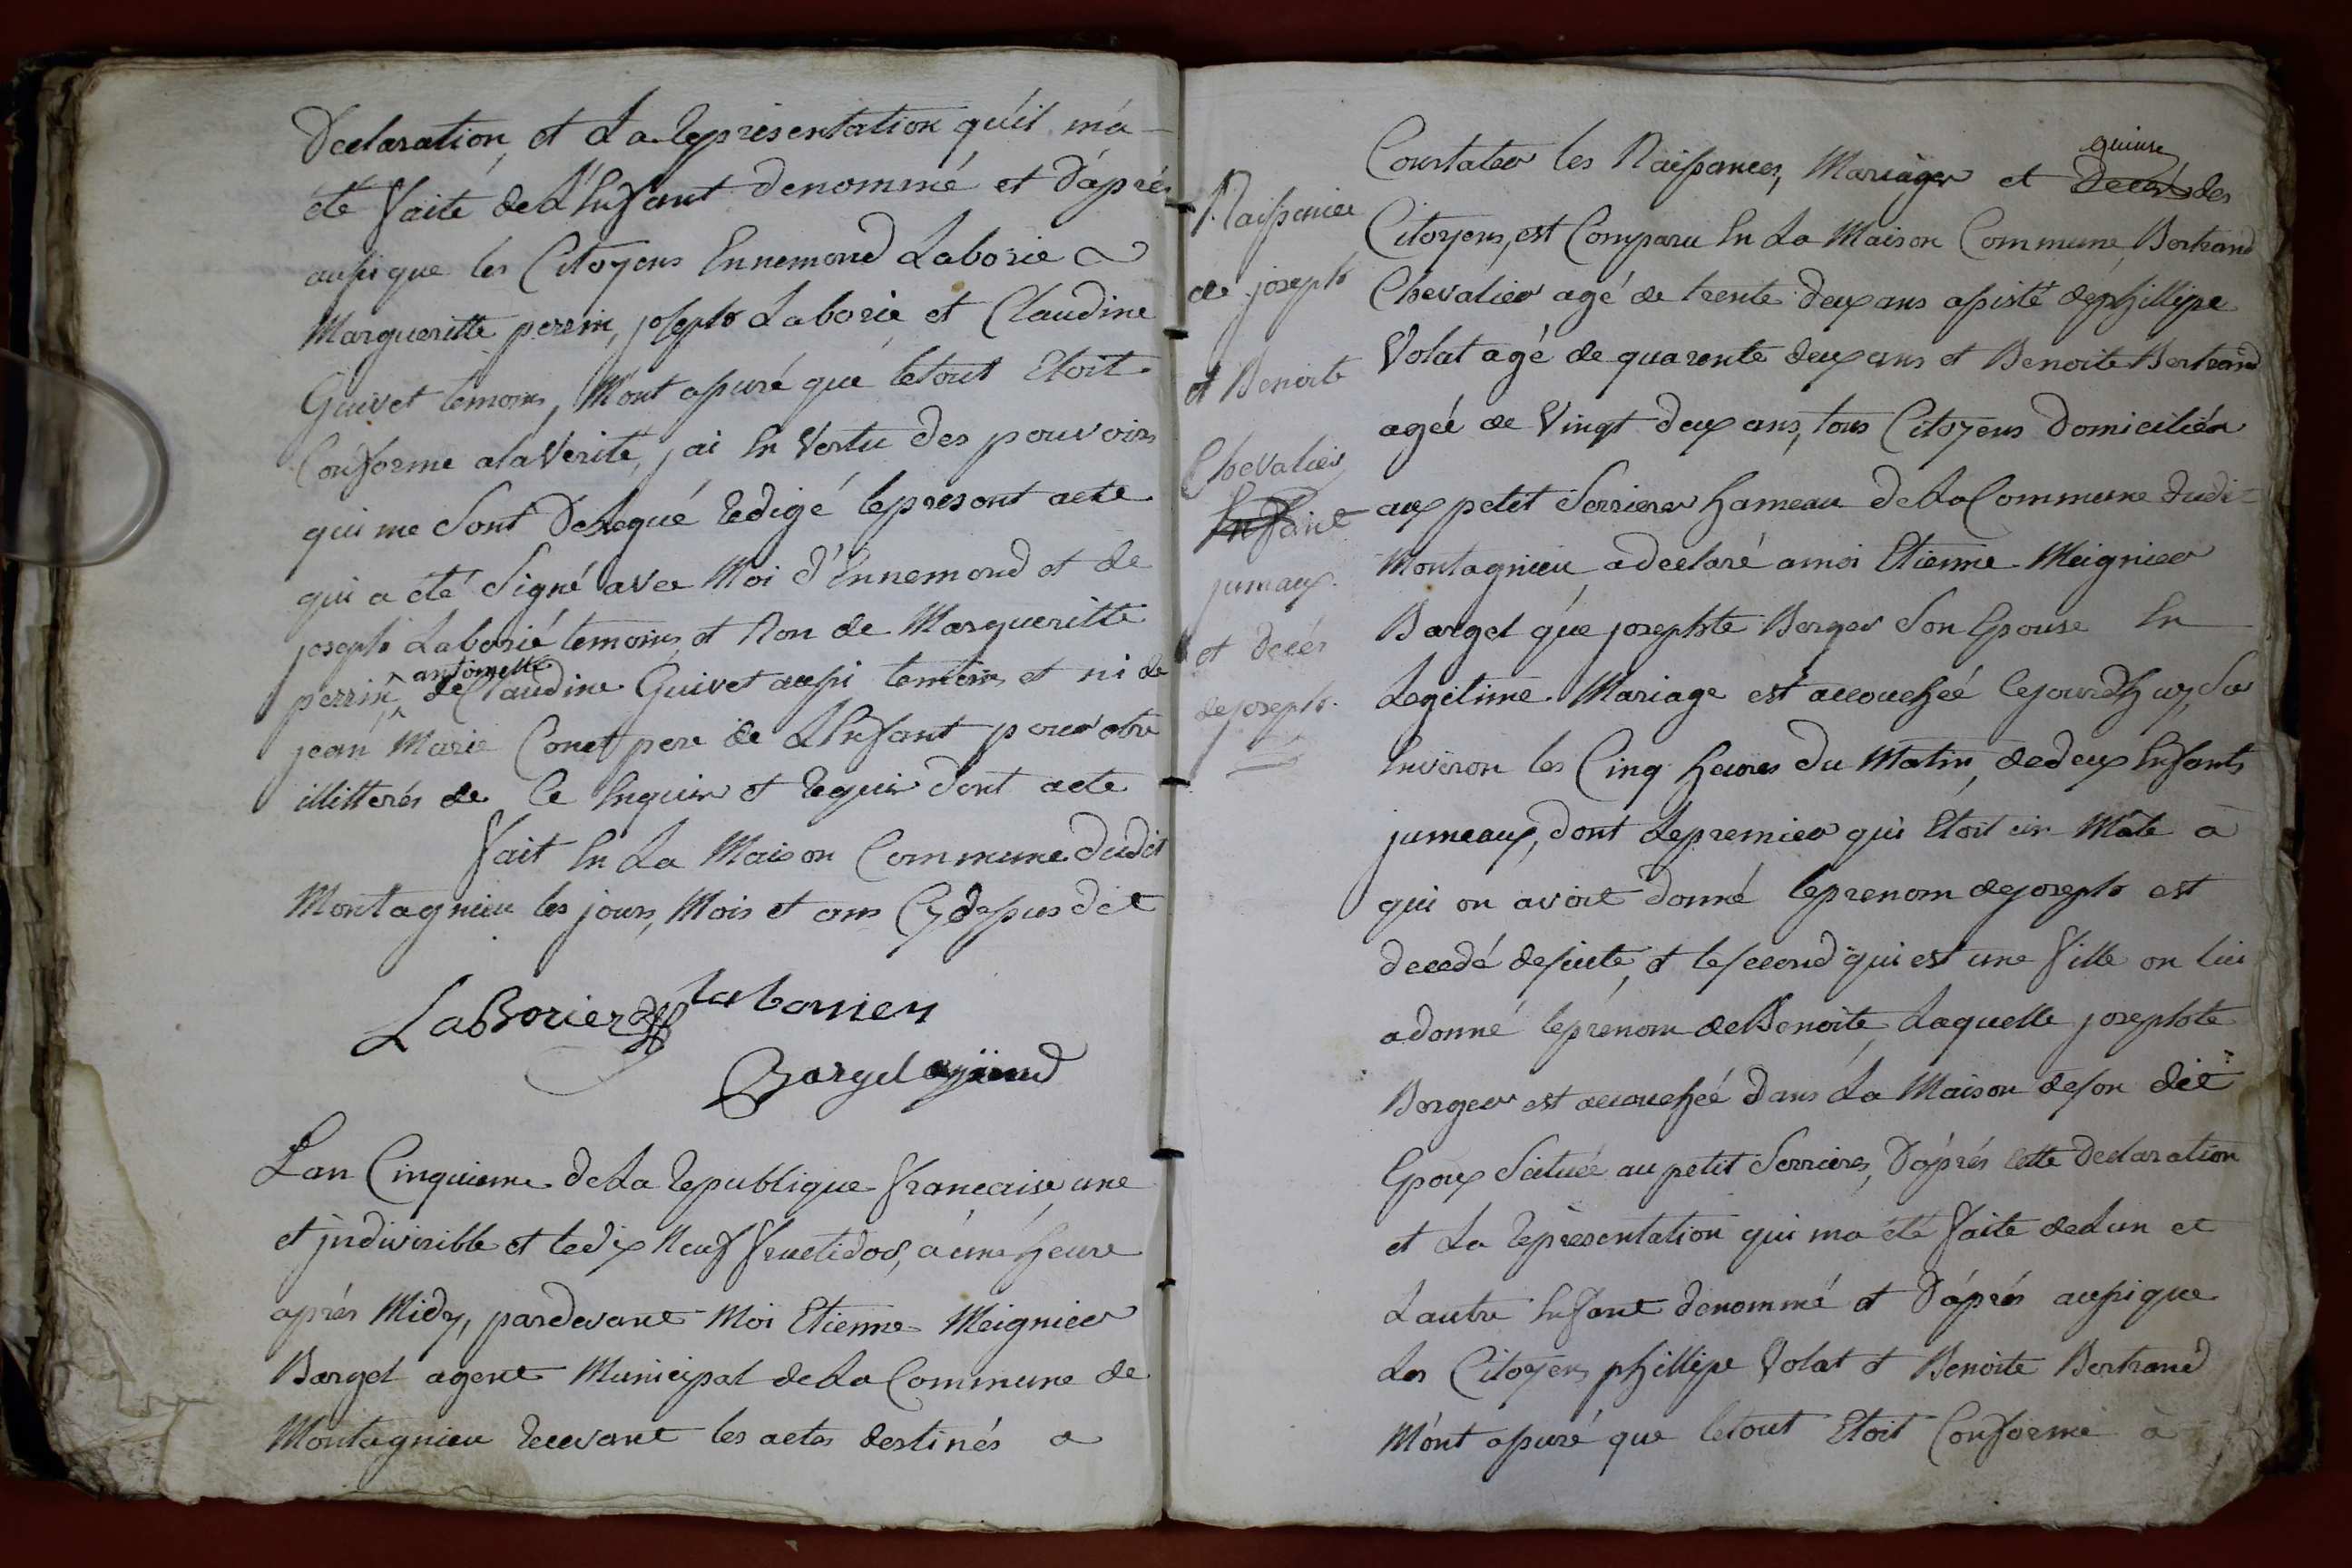 Declaration, et La Representation qu'il m'a
été faite de L'Enfant denommé et D'après
aussi que les Citoyens Ennemond Laborie
Margueritte perrin, joseph Laborie et Claudine
Guivet temoins, M'ont assuré que letout Etoit
Conforme a la Verité, j'ai En Vertu des pouvoirs
qui me Sont Delegué Redigé leprésent acte
qui a été Signé avec Moi d'Ennemond et de
joseph Laborie temoins, et Non de Margueritte
antoinette
perrin, de Claudine Guivet aussi temoin et ni de
jean Marie Conet pere de LEnfant pour être
illitterés de Ce Enquis et Requis dont acte
fait En La Maison Commune dudit
Montagnieu les jours, Mois et ans Cy dessus dit
LaBorier laborier
Bargel agent
Lan Cinquieme de La Republique francaise, une
et jndivisible et ledix Neuf fructidor, a une heure
après Midy, pardevant Moi Etienne Meignier
Bargel agent Municipal de La Commune de
Montagnieu Recevant les actes destinés a
Naissance
de joseph
et Benoite
Chevalier
Enfant
jumaux
et decés
de joseph
Constater les Naissances, Mariages et Decés des
Citoyens, est Comparu En La Maison Commune, Bertrand
Chevalier agé de trente deux ans assisté de phillipe
Volat agé de quarente deux ans et Benoite Bertrand
ageé de Vingt deux ans, tous Citoyens Domiciliés
aux petit Serrieres hameau de La Commune dudit
Montagnieu, a declaré a moi Etienne Meignier
Bargel que josephte Berger Son Epouse En
Legitime Mariage est accoucheé cejourdhuy, Sur
Environ les Cinq heures du Matin, de deux Enfants
jumeaux, dont Lepremier qui Etoit un Mâle à
qui on avoit donné leprenom de joseph est
decedé desuite, et lesecond qui est une fille on lui
a donné leprénom de Benoite, Laquelle josephte
Berger est accoucheé dans La Maison deson dit
Epoux Situeé au petit Serrieres, D'après cette Declaration
et La Représentation qui ma été faite de Lun et
Lautre Enfant denommé et D'après aussi que
Les Citoyens phillipe Volat et Benoite Bertrand
M'ont assuré que letout Etoit Conforme à